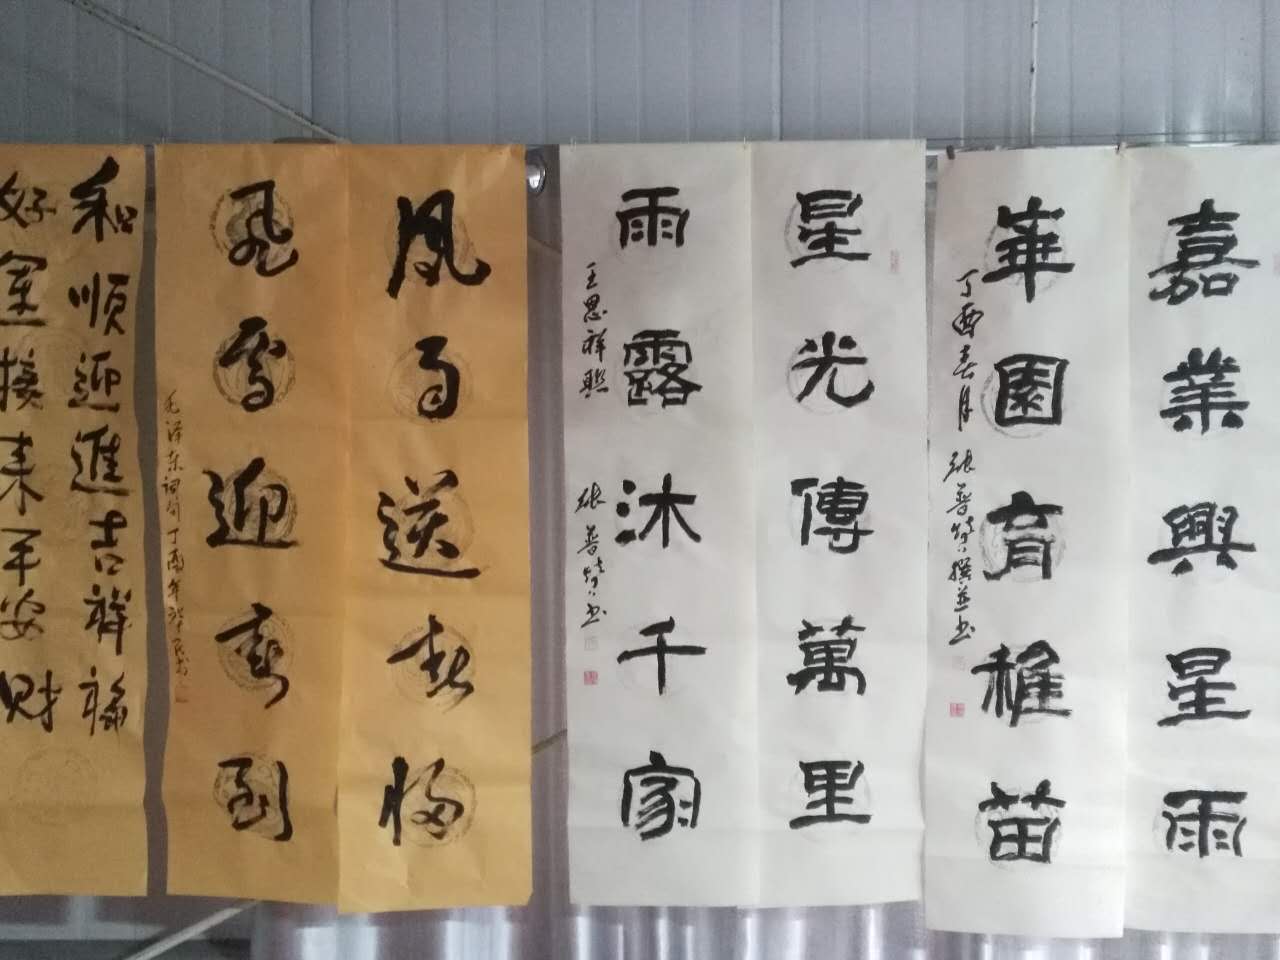 嘉業興星雨
華園育稚苗
丁酉春月 张普撰并书
星光傳萬里
雨露沐千家
王思祥联 张普书
风雨送春归
飞雪迎春到
毛泽东词句丁酉年
和順迎進吉祥福
好運接来平安财